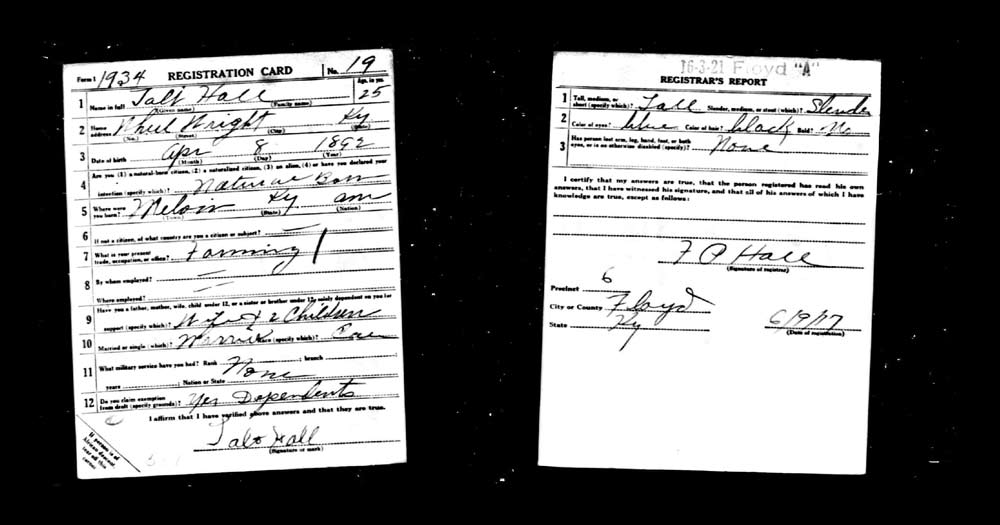 Form 1 1934 REGISTRATION CARD No. 19
1 Name in full Talt Hall Age, in yrs. 25
(Given name) (Family name)
2 Home address Wheel Wright Ky
(No.) (Street) (City) (State)
3 Date of birth Apr 8 1892
(Month) (Day) (Year)
Are you (1) a natural-born citizen, (2) a naturalized citizen, (3) an alien, (4) or have you declared your
4 intention (specify which)? Natural Born
5 Where were you born? Melvin Ky am
(Town) (State) (Nation)
6 If not a citizen, of what country are you a citizen or subject? —
7 What is your present trade, occupation, or office? Farming
8 By whom employed? —
Where employed? —
9 Have you a father, mother, wife, child under 12, or a sister or brother under 12, solely dependent on you for
support (specify which)? Wife & 2 Children
10 Married or single (which)? Race (specify which)? Cau
11 What military service have you had? Rank None ; branch
years ; Nation or State
12 Do you claim exemption from draft (specify grounds)? Yes Dependents
I affirm that I have verified above answers and that they are true.
Talt Hall
(Signature or mark)
If person is of
African descent,
tear off this
corner.
16-3-21 Floyd "A"
REGISTRAR'S REPORT
1 Tall, medium, or short (specify which)? Tall Slender, medium, or stout (which)? Slender
2 Color of eyes? blue Color of hair? black Bald? No
3 Has person lost arm, leg, hand, foot, or both eyes, or is he otherwise disabled (specify)? None
I certify that my answers are true, that the person registered has read his own
answers, that I have witnessed his signature, and that all of his answers of which I have
knowledge are true, except as follows:
F P Hall
(Signature of registrar)
Precinct 6
City or County Floyd
State Ky 6/9/17
(Date of registration)